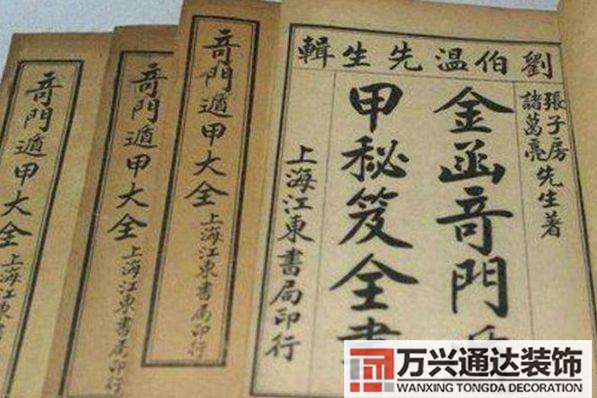 劉伯溫先生輯
張子房
諸葛亮
先生著
金函竒門
甲秘笈全書
上海江東書局印行
竒門遁甲大全
上海江東書局印行
竒門遁甲大全
上海江東書局印行
竒門遁甲大全
上海江東書局印行
万兴通达装饰
WANXING TONGDA DECORATION